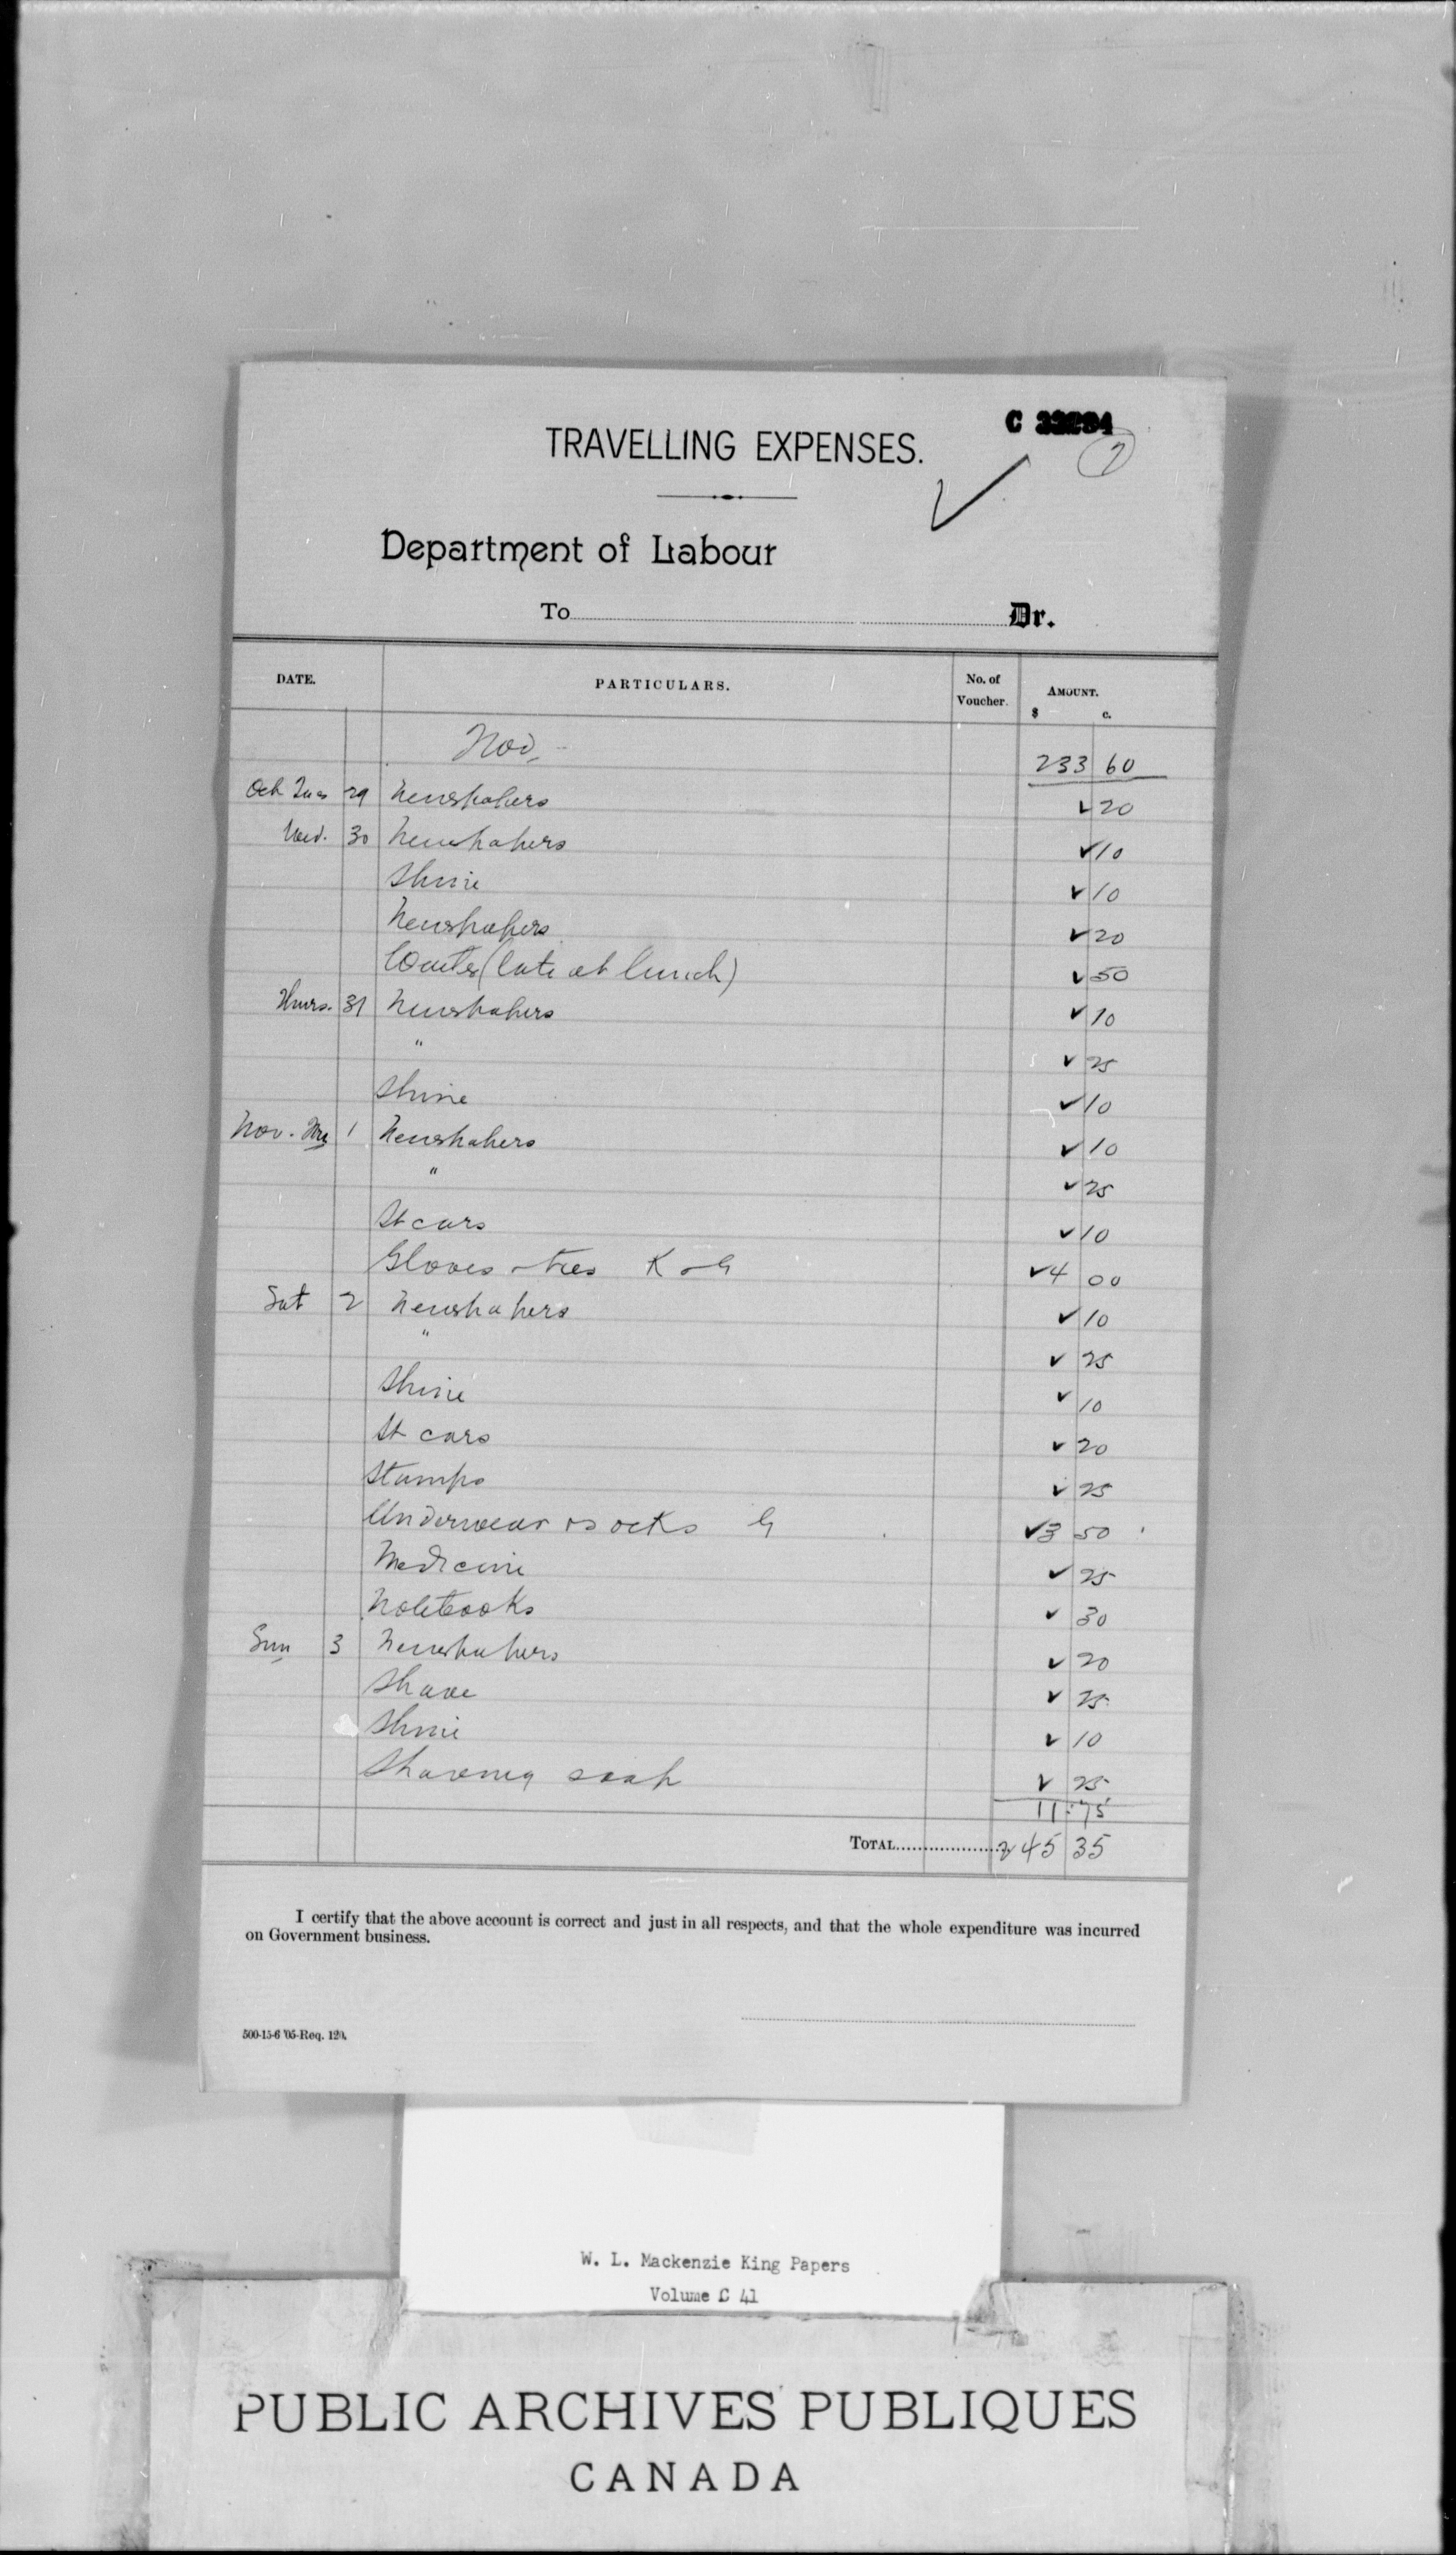 C 33294
7
TRAVELLING EXPENSES.
Department of Labour
To Dr.
DATE. PARTICULARS. No. of Voucher. AMOUNT. $ c.
233 60
Oct Tues 29 Newspapers 20
Wed. 30 Newspapers 10
Shine 10
Newspapers 20
Waiter (late at lunch) 50
Thurs. 31 Newspapers 10
" 25
Shine 10
Nov. Fri 1 Newspapers 10
" 25
St cars 10
Gloves & ties K & G 4 00
Sat 2 Newspapers 10
" 25
Shine 10
St cars 20
Stamps 25
Underwear & socks G 3 50
Medicine 25
Notebooks 30
Sun 3 Newspapers 20
Shave 25
Shine 10
Shaving soap 25
11.75
TOTAL 245 35
I certify that the above account is correct and just in all respects, and that the whole expenditure was incurred
on Government business.
500-15-6 '05-Req. 120.
W. L. Mackenzie King Papers
Volume C 41
PUBLIC ARCHIVES PUBLIQUES
CANADA